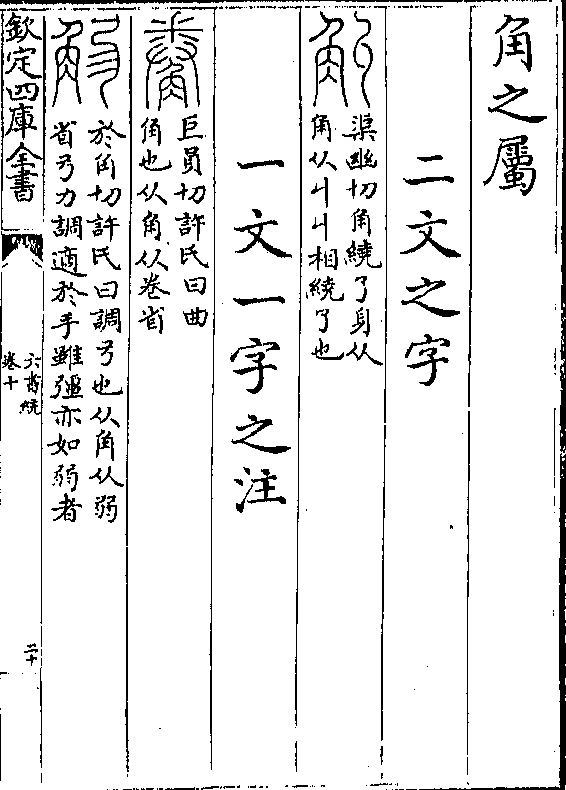 角之屬
二文之字
觓
渠幽切角繞了皃从
角从丩丩相繞了也
一文一字之注
觠
巨員切許氏曰曲
角也从角从卷省
於角切許氏曰調弓也从角从弱
省弓力調適於手雖彊亦如弱者
欽定四庫全書
六書統
卷十